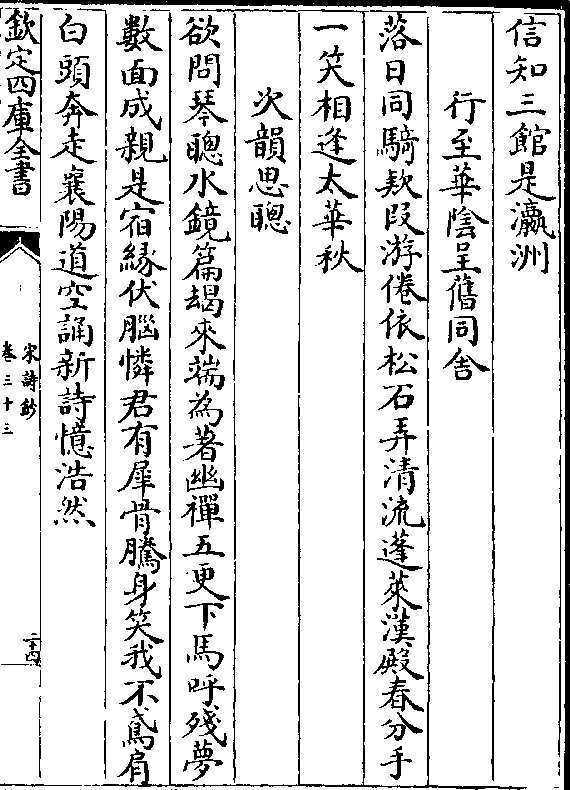 信知三館是瀛洲
行至華陰呈舊同舍
落日同騎欵段游倦依松石弄清流蓬萊漢殿春分手
一笑相逢太華秋
次韻思聰
欲問琴聰水鏡篇朅來端為著幽禪五更下馬呼殘夢
數面成親是宿緣伏腦憐君有犀骨騰身笑我不鳶肩
白頭奔走襄陽道空誦新詩憶浩然
欽定四庫全書
宋詩鈔
卷三十三
二十四